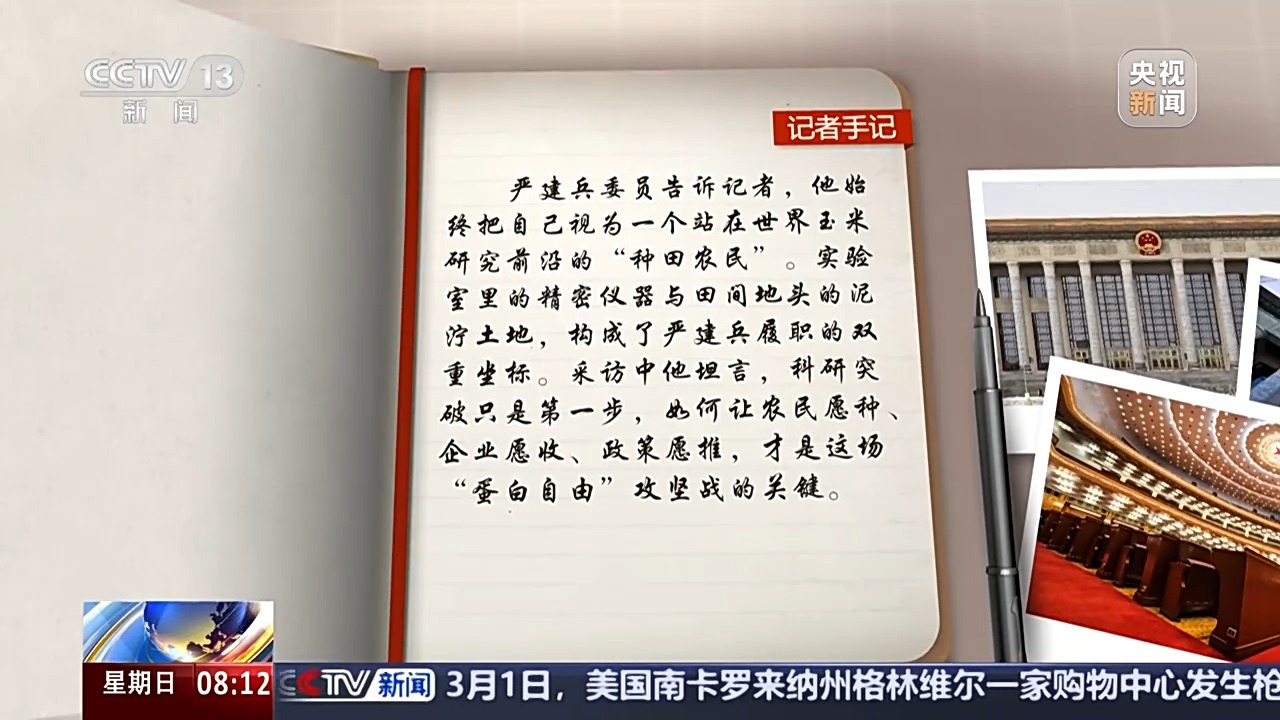 CCTV 13
新闻
央视
新闻
记者手记
严建兵委员告诉记者，他始
终把自己视为一个站在世界玉米
研究前沿的“种田农民”。实验
室里的精密仪器与田间地头的泥
泞土地，构成了严建兵履职的双
重坐标。采访中他坦言，科研突
破只是第一步，如何让农民愿种、
企业愿收、政策愿推，才是这场
“蛋白自由”攻坚战的关键。
星期日 08:12 CCTV新闻 3月1日，美国南卡罗来纳州格林维尔一家购物中心发生枪